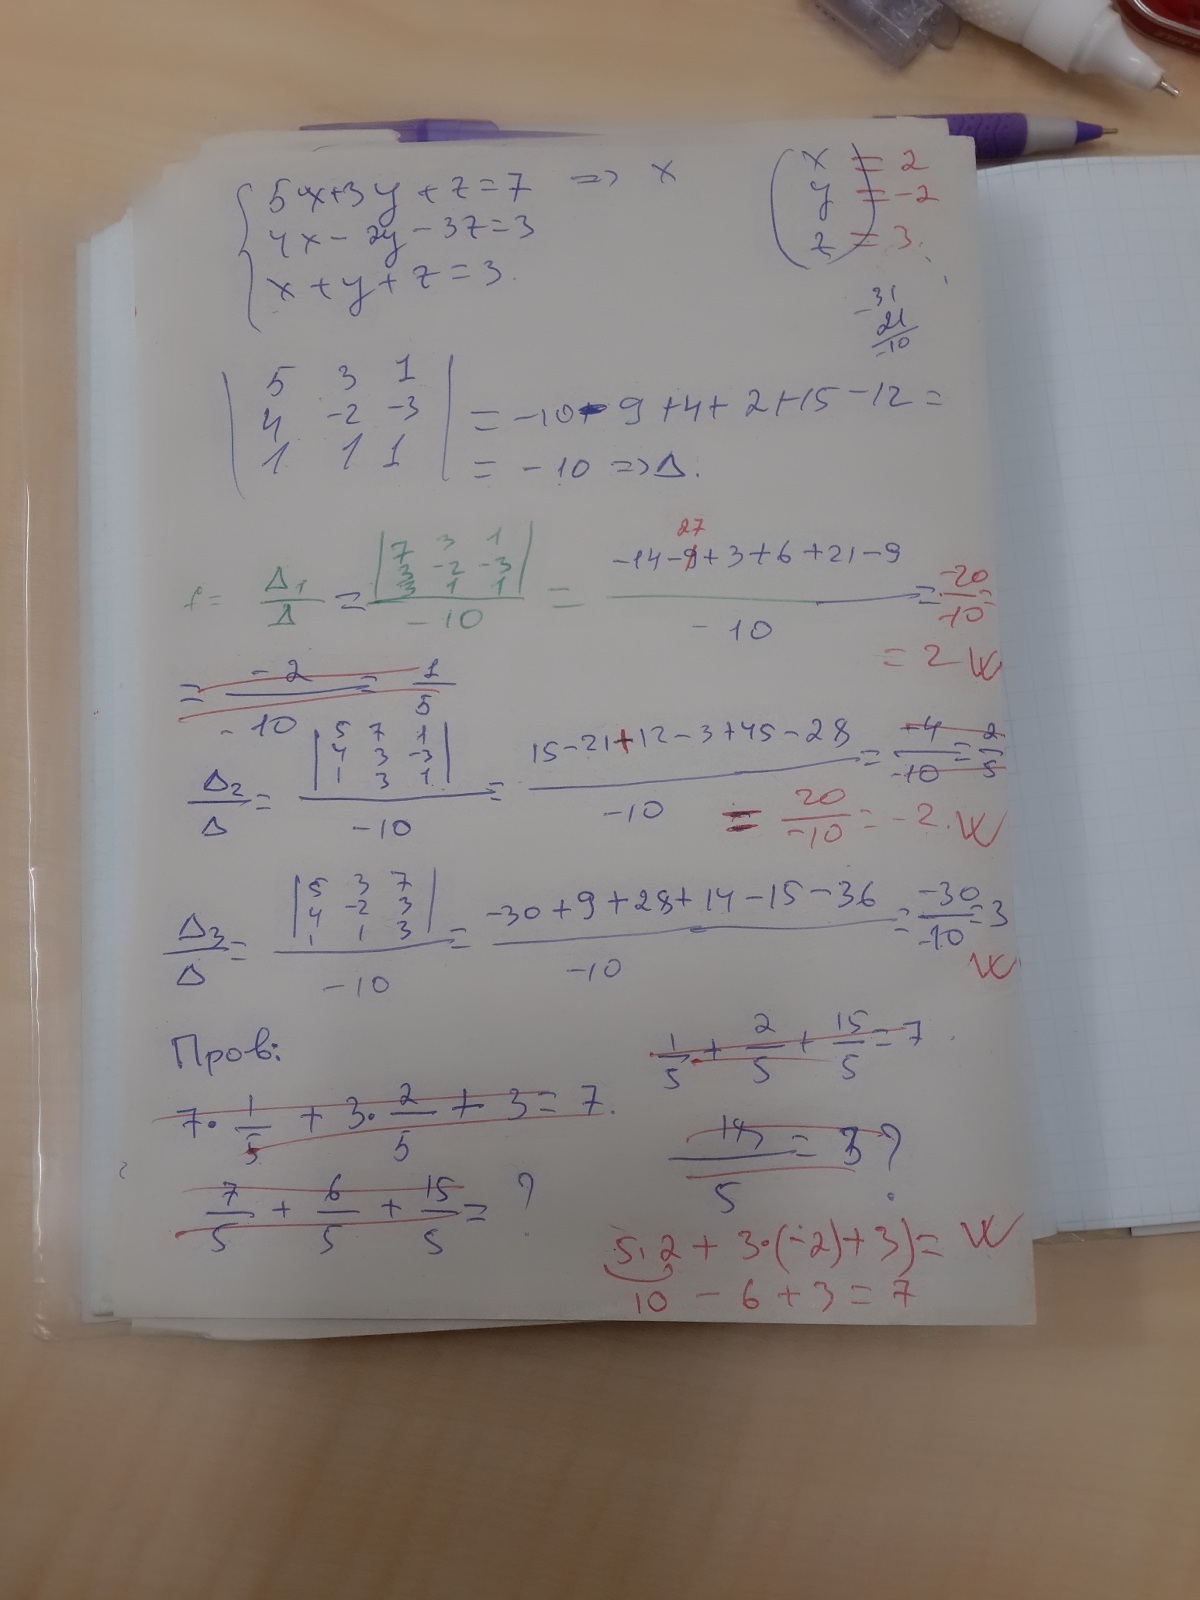 5x+3y+z=7 => x
4x-2y-3z=3
x+y+z=3.
x = 2
y = -2
z = 3.
-31
21
-10
5 3 1
4 -2 -3
1 1 1
= -10 - 9 + 4 + 2 + 15 - 12 =
= -10 => Δ.
27
Δ1/Δ = |7 3 1; 3 -2 -3; 3 1 1| / -10 = -14-9+3+6+21-9 / -10 = -20/-10 =
= 2 W
= -2/-10 = 1/5
Δ2/Δ = |5 7 1; 4 3 -3; 1 3 1| / -10 = 15-21+12-3+45-28 / -10 = +4/-10 = 2/5
= 20/-10 = -2. W
Δ3/Δ = |5 3 7; 4 -2 3; 1 1 3| / -10 = -30+9+28+14-15-36 / -10 = -30/-10 = 3
W
Пров:
1/5 + 2/5 + 15/5 = 7.
7·1/5 + 3·2/5 + 3 = 7.
/5 = 3?
7/5 + 6/5 + 15/5 = ?
5·2 + 3·(-2)+3) = W
10 - 6 + 3 = 7